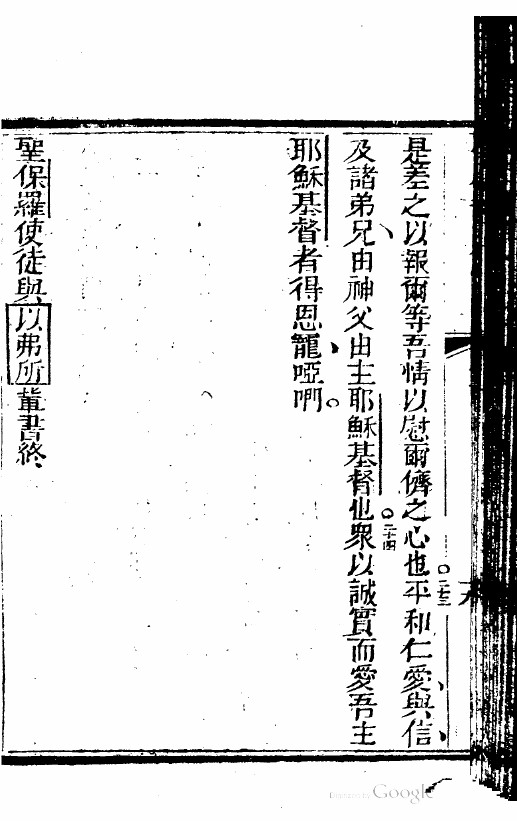 是差之以報爾等吾情以慰爾儕之心也。二十三平和仁愛、與信、
及諸弟兄、由神父由主耶穌基督也。二十四衆以誠實而愛吾主
耶穌基督者得恩寵、啞們。
聖保羅使徒與以弗所輩書終
Digitized by Google